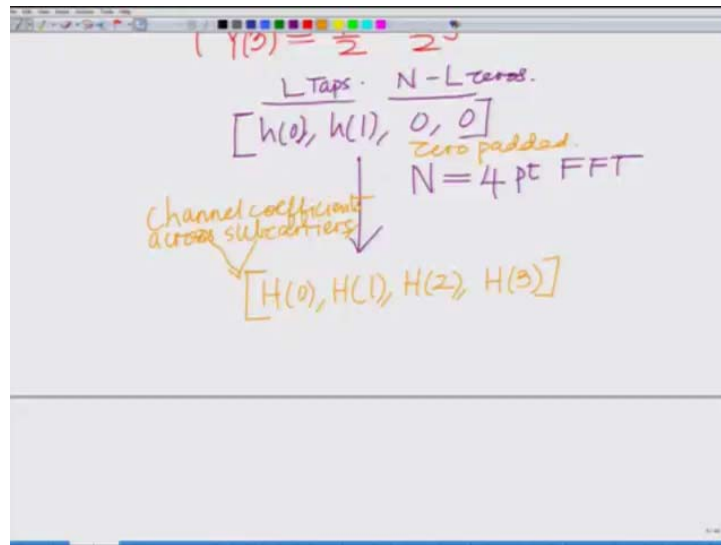 Y(3) = 1/2 2 j
L Taps. N-L zeros.
[h(0), h(1), 0, 0]
zero padded.
N = 4 pt FFT
Channel coefficients
across subcarriers
[H(0), H(1), H(2), H(3)]